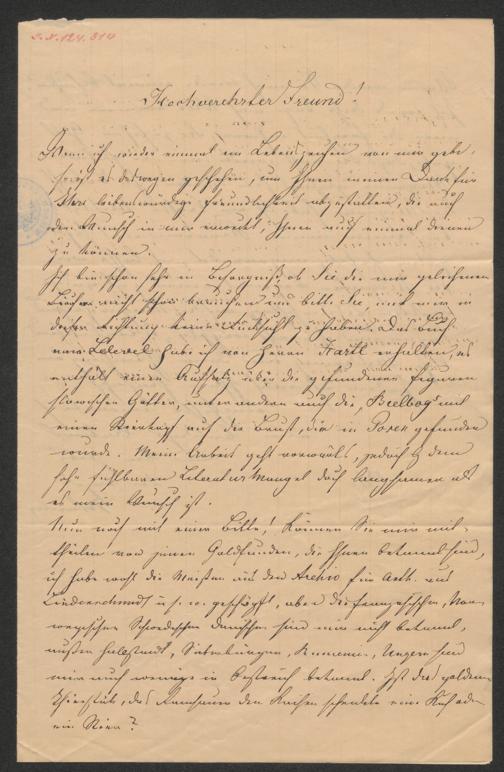 S. N. 124.814
Hochverehrter Freund!
Wenn ich wieder einmal ein Lebenszeichen von mir gebe,
so ist es deswegen geschehen, um Ihnen meinen Dank für
Ihre liebenswürdige Freundlichkeit abzustatten, die auch
den Wunsch in mir erweckt, Ihnen auch einmal dienen
zu können.
Ich bin schon sehr in Besorgniß, ob Sie die mir geliehenen
Bücher nicht schon brauchen und bitte Sie, mit mir in
dieser Richtung keine Rücksicht zu haben. Das Buch
von Lelevel habe ich von Herrn Hartl erhalten, es
enthält einen Aufsatz über die gefundenen Figuren
slavischer Götter, unter andern auch die, Beelbog und
einen auf der Brust, die in Posen gefunden
wurde. Meine Arbeit geht vorwärts, jedoch dem
sehr fühlbaren Literatur Mangel doch langsamer als
es mein Wunsch ist.
Nun noch mit einer Bitte! Können Sie mir mit-
theilen von jenen Goldfunden, die Ihnen bekannt sind,
ich habe wohl die Meisten aus dem Archiv für Anth. und
Lindenschmidt u. s. w. geschöpft, aber die französischen, Nor-
wegischen Schwedischen Dänischen sind mir nicht bekannt,
außer Halstadt, Siebenbürgen, Rumenien, Ungarn sind
mir auch wenige in bekannt. Ist das goldene
Thierstück, das den schenkte eine Kuh oder
ein Stier?